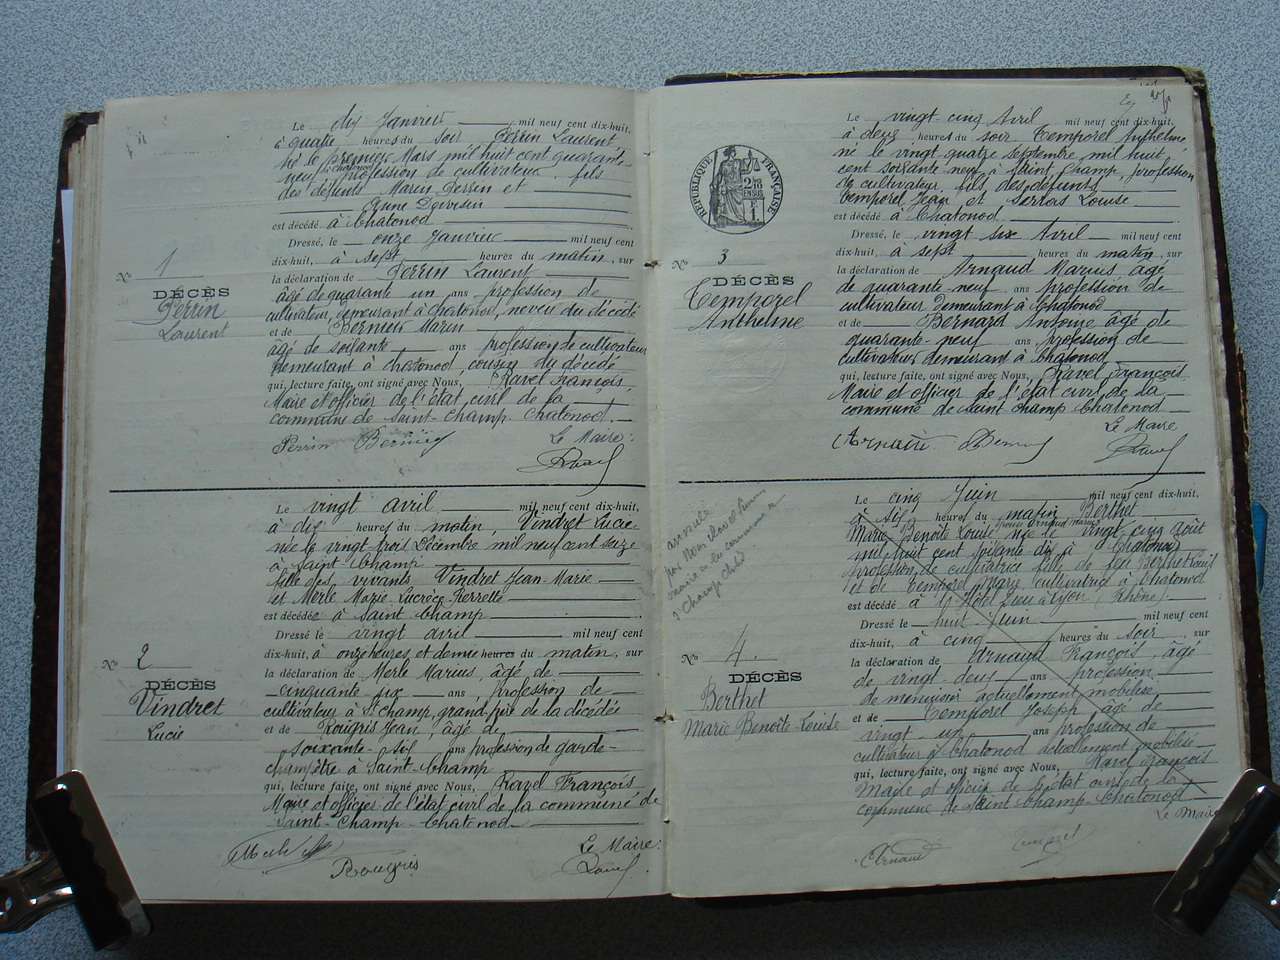 Le dix Janvier mil neuf cent dix-huit,
à quatre heures du soir Perrin Laurent
né le premier Mars mil huit cent quarante-
neuf à Chatonod profession de cultivateur, fils
des défunts Marin Perrin et
Anne Dervisin
est décédé à Chatonod
Dressé, le onze Janvier mil neuf cent
dix-huit, à sept heures du matin, sur
la déclaration de Perrin Laurent
âgé de quarante un ans profession de
cultivateur, demeurant à Chatonod, neveu du décédé
et de Bernier Marin
âgé de soixante ans profession de cultivateur
demeurant à Chatonod cousin du décédé
qui, lecture faite, ont signé avec Nous, Ravel François,
Maire et officier de l'état civil de la
commune de Saint-Champ-Chatonod.
Perrin Bernier Le Maire:
Ravel
No 1
DÉCÈS
Perrin
Laurent
Le vingt avril mil neuf cent dix-huit,
à dix heures du matin, Vindret Lucie
née le vingt trois Décembre mil neuf cent seize
à Saint Champ
fille des vivants Vindret Jean-Marie
et Merle Marie Lucrèce Pierrette
est décédée à Saint Champ
Dressé le vingt avril mil neuf cent
dix-huit, à onze heures et demie heures du matin, sur
la déclaration de Merle Marius, âgé de
cinquante six ans, profession de
cultivateur à St Champ, grand-père de la décédée
et de Rougris Jean, âgé de
soixante-six ans profession de garde-
champêtre à Saint-Champ
qui, lecture faite, ont signé avec Nous, Ravel François
Maire et officier de l'état civil de la commune de
Saint-Champ-Chatonod
Le Maire:
Rougris Ravel
No 2
DÉCÈS
Vindret
Lucie
RÉPUBLIQUE FRANÇAISE
Le vingt cinq Avril mil neuf cent dix-huit,
à deux heures du soir Temporel Anthelme
né le vingt quatre septembre mil huit
cent soixante neuf à Saint Champ, profession
de cultivateur, fils des défunts
Temporel Jean et Serras Louise
est décédé à Chatonod
Dressé, le vingt six Avril mil neuf cent
dix-huit, à sept heures du matin, sur
la déclaration de Arnaud Marius âgé
de quarante-neuf ans profession de
cultivateur demeurant à Chatonod
et de Bernard Antoine âgé de
quarante-neuf ans, profession de
cultivateur demeurant à Chatonod
qui, lecture faite, ont signé avec Nous, Ravel François
Maire et officier de l'état civil de la
commune de Saint Champ Chatonod
Le Maire
Ravel
No 3
DÉCÈS
Temporel
Anthelme
Le cinq Juin mil neuf cent dix-huit,
à six heures du matin Berthet
Marie Benoîte Louise épouse Arnaud Marius née le vingt cinq août
mil huit cent soixante dix à Chatonod
profession de cultivatrice fille de feu Berthet
et de Temporel Marie cultivatrice à Chatonod
est décédé à l'Hôtel Dieu à Lyon (Rhône).
Dressé le huit Juin mil neuf cent
dix-huit, à cinq heures du soir, sur
la déclaration de Arnaud François, âgé
de vingt-deux ans profession
de menuisier actuellement mobilisé
et de Temporel Joseph âgé de
vingt-un ans profession de
cultivateur à Chatonod actuellement mobilisé
qui, lecture faite, ont signé avec Nous, Ravel François
Maire et officier de l'état civil de la
commune de Saint Champ-Chatonod
Le Maire
Arnaud Temporel
annulé
No 4.
DÉCÈS
Berthet
Marie Benoîte-Louise